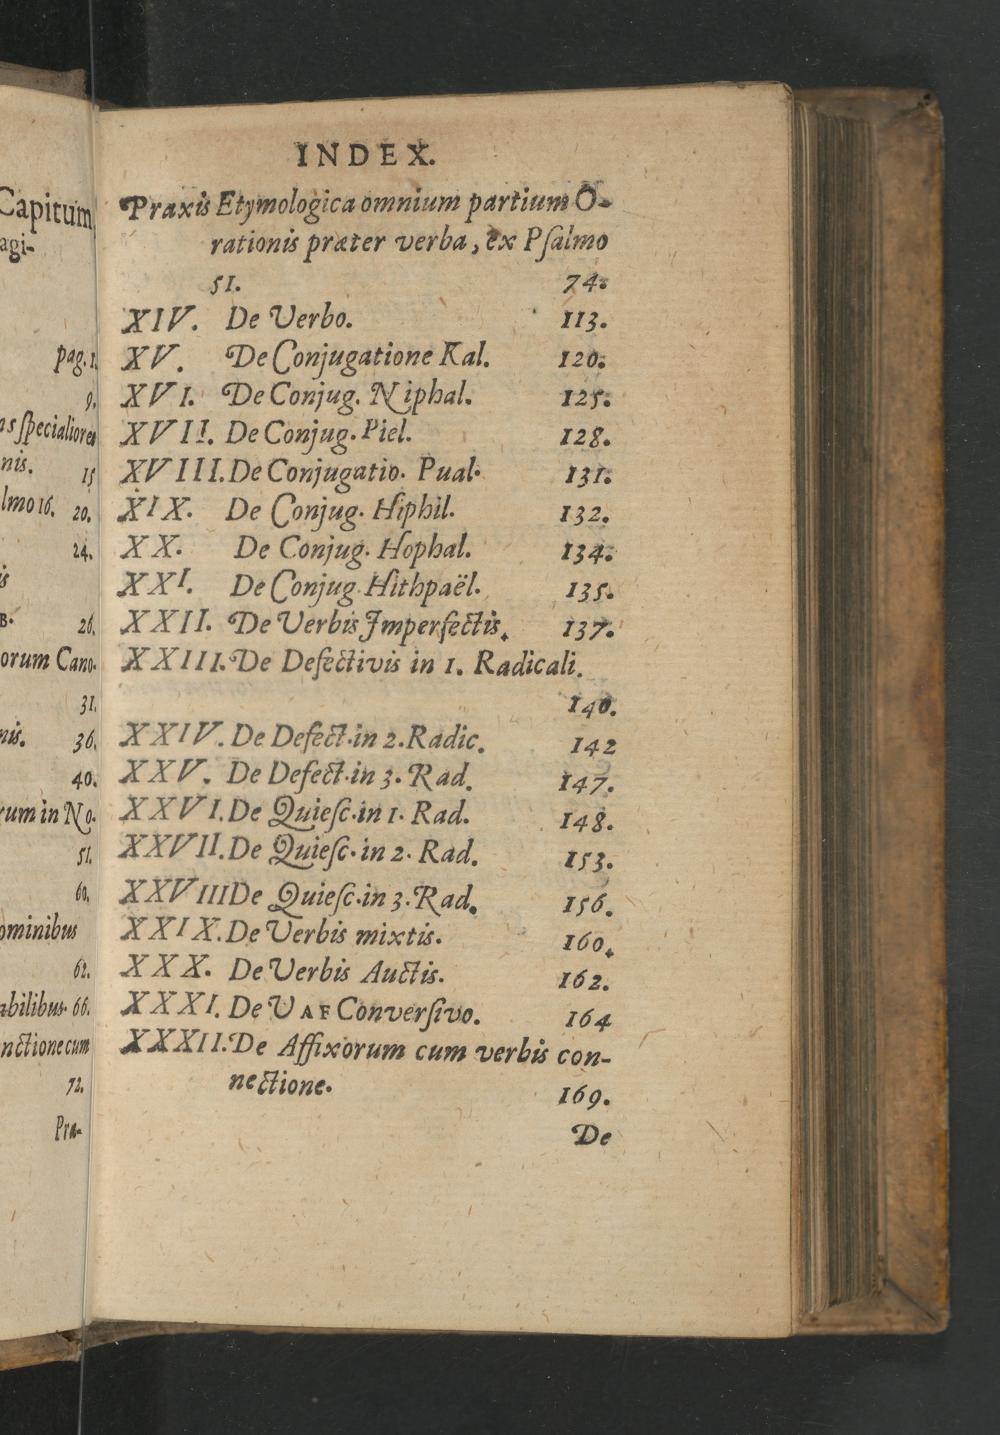 Capitum
agi-
pag. 1.
9.
ns specialiores
nis. 15
lmo 16. 20.
24.
is
B. 26.
orum Cano-
31.
nis. 36.
40.
rum in No-
51.
60.
ominibus
62.
abilibus. 66.
nctione cum
72.
Pra-
INDEX.
Praxis Etymologica omnium partium O-
rationis præter verba, ex Psalmo
51. 74.
XIV. De Verbo. 113.
XV. De Conjugatione Kal. 120.
XVI. De Conjug. Niphal. 125.
XVII. De Conjug. Piel. 128.
XVIII. De Conjugatio. Pual. 131.
XIX. De Conjug. Hiphil. 132.
XX. De Conjug. Hophal. 134.
XXI. De Conjug. Hithpaël. 135.
XXII. De Verbis Imperfectis. 137.
XXIII. De Defectivis in 1. Radicali.
140.
XXIV. De Defect. in 2. Radic. 142
XXV. De Defect. in 3. Rad. 147.
XXVI. De Quiesc. in 1. Rad. 148.
XXVII. De Quiesc. in 2. Rad. 153.
XXVIII De Quiesc. in 3. Rad. 156.
XXIX. De Verbis mixtis. 160.
XXX. De Verbis Auctis. 162.
XXXI. De VAF Conversivo. 164
XXXII. De Affixorum cum verbis con-
nectione. 169.
De